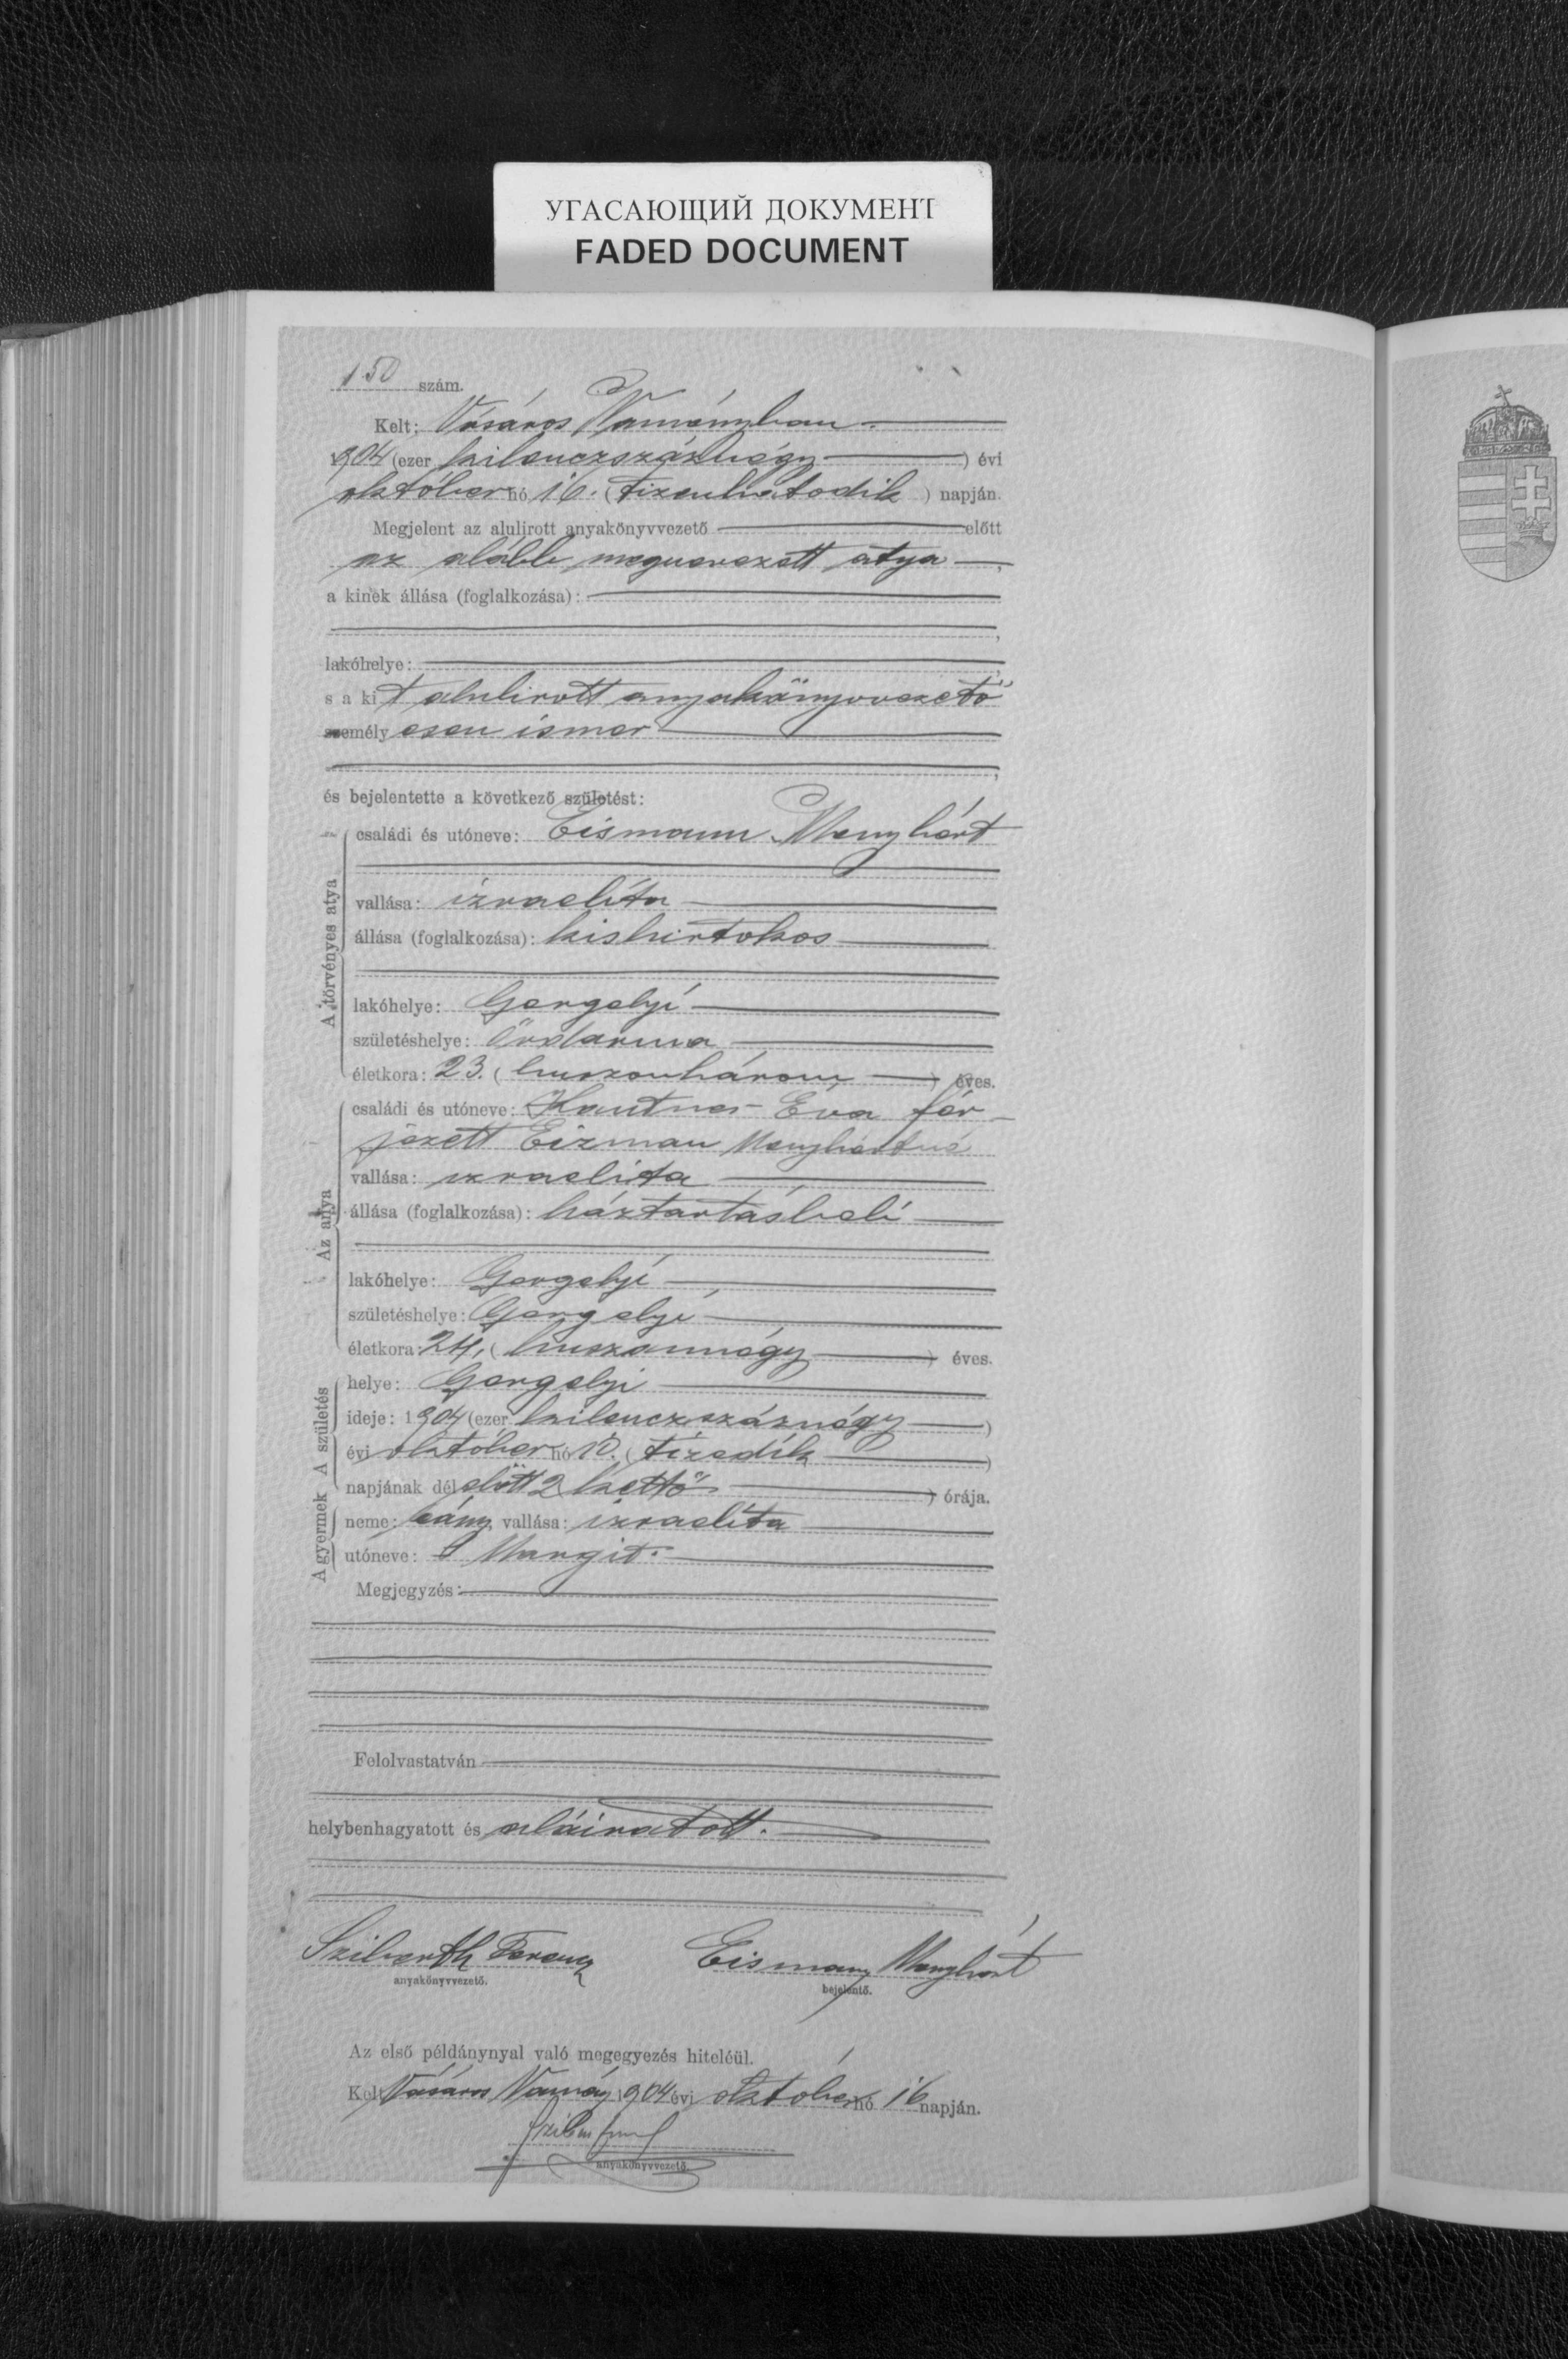 УГАСАЮЩИЙ ДОКУМЕНТ
FADED DOCUMENT
150 szám.
Kelt: Vásáros Naményban
1904 (ezer kilenczszáznégy) évi
október hó 16. (tizenhatodik) napján.
Megjelent az alulirott anyakönyvvezető előtt
az alább megnevezett atya,
a kinek állása (foglalkozása):
lakóhelye:
s a kit alulirott anyakönyvvezető
személyesen ismer
és bejelentette a következő születést:
A törvényes atya
családi és utóneve: Eismann Menyhért
vallása: izraelita
állása (foglalkozása): kisbirtokos
lakóhelye: Gergelyi
születéshelye: Ördarma
életkora: 23. (huszonhárom) éves.
Az anya
családi és utóneve: Kantner Éva fér-
jezett Eizman Menyhértné
vallása: izraelita
állása (foglalkozása): háztartásbeli
lakóhelye: Gergelyi
születéshelye: Gergelyi
életkora: 24, (huszonnégy) éves.
A születés
helye: Gergelyi
ideje: 1904 (ezer kilenczszáznégy)
évi október hó 10. (tizedik)
napjának délelőtt 2 (kettő) órája.
A gyermek
neme: leány, vallása: izraelita
utóneve: Margit.
Megjegyzés:
Felolvastatván
helybenhagyatott és aláiratott.
Szilverth Ferencz Eismann Menyhért
anyakönyvvezető. bejelentő.
Az első példánynyal való megegyezés hiteléül.
Kelt Vásáros Namény 1904 évi október hó 16 napján.
anyakönyvvezető.